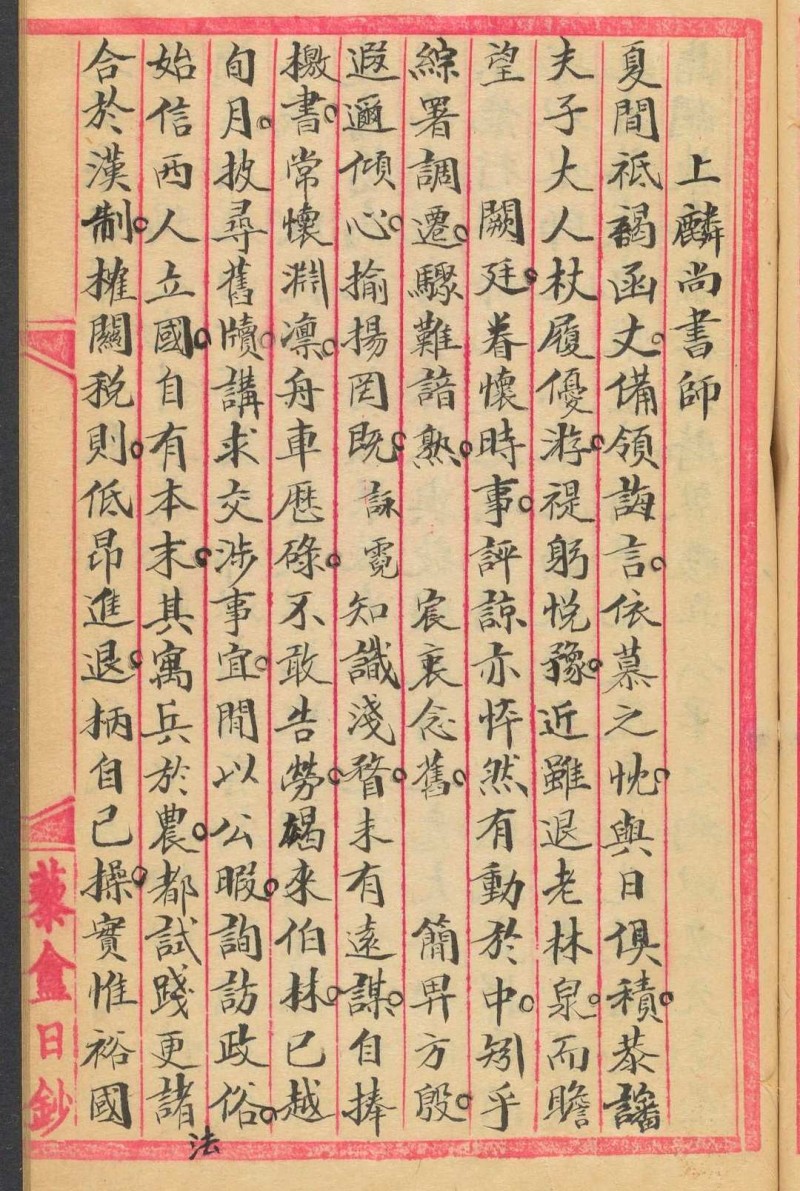 上麟尚書師
夏間祗褐函丈。備領誨言。依慕之忱。與日俱積。恭讅
夫子大人杖履優游。禔躬悅豫。近雖退老林泉。而瞻
望 闕廷。眷懷時事。評諒亦悴然有動於中。矧乎
綜署調遷。驟難諳熟。 宸衷念舊。 簡畀方殷。
遐邇傾心。揄揚罔既。詠霓知識淺瞀。未有遠謀。自捧
檄書。常懷淵凛。舟車歷碌。不敢告勞。朅來伯林。已越
旬月。披尋舊牘。講求交涉事宜。間以公暇。詢訪政俗。
始信西人立國。自有本末。其寓兵於農。都試踐更諸法
合於漢制。搉關稅則。低昂進退。柄自已操。實惟裕國
藜盦日鈔